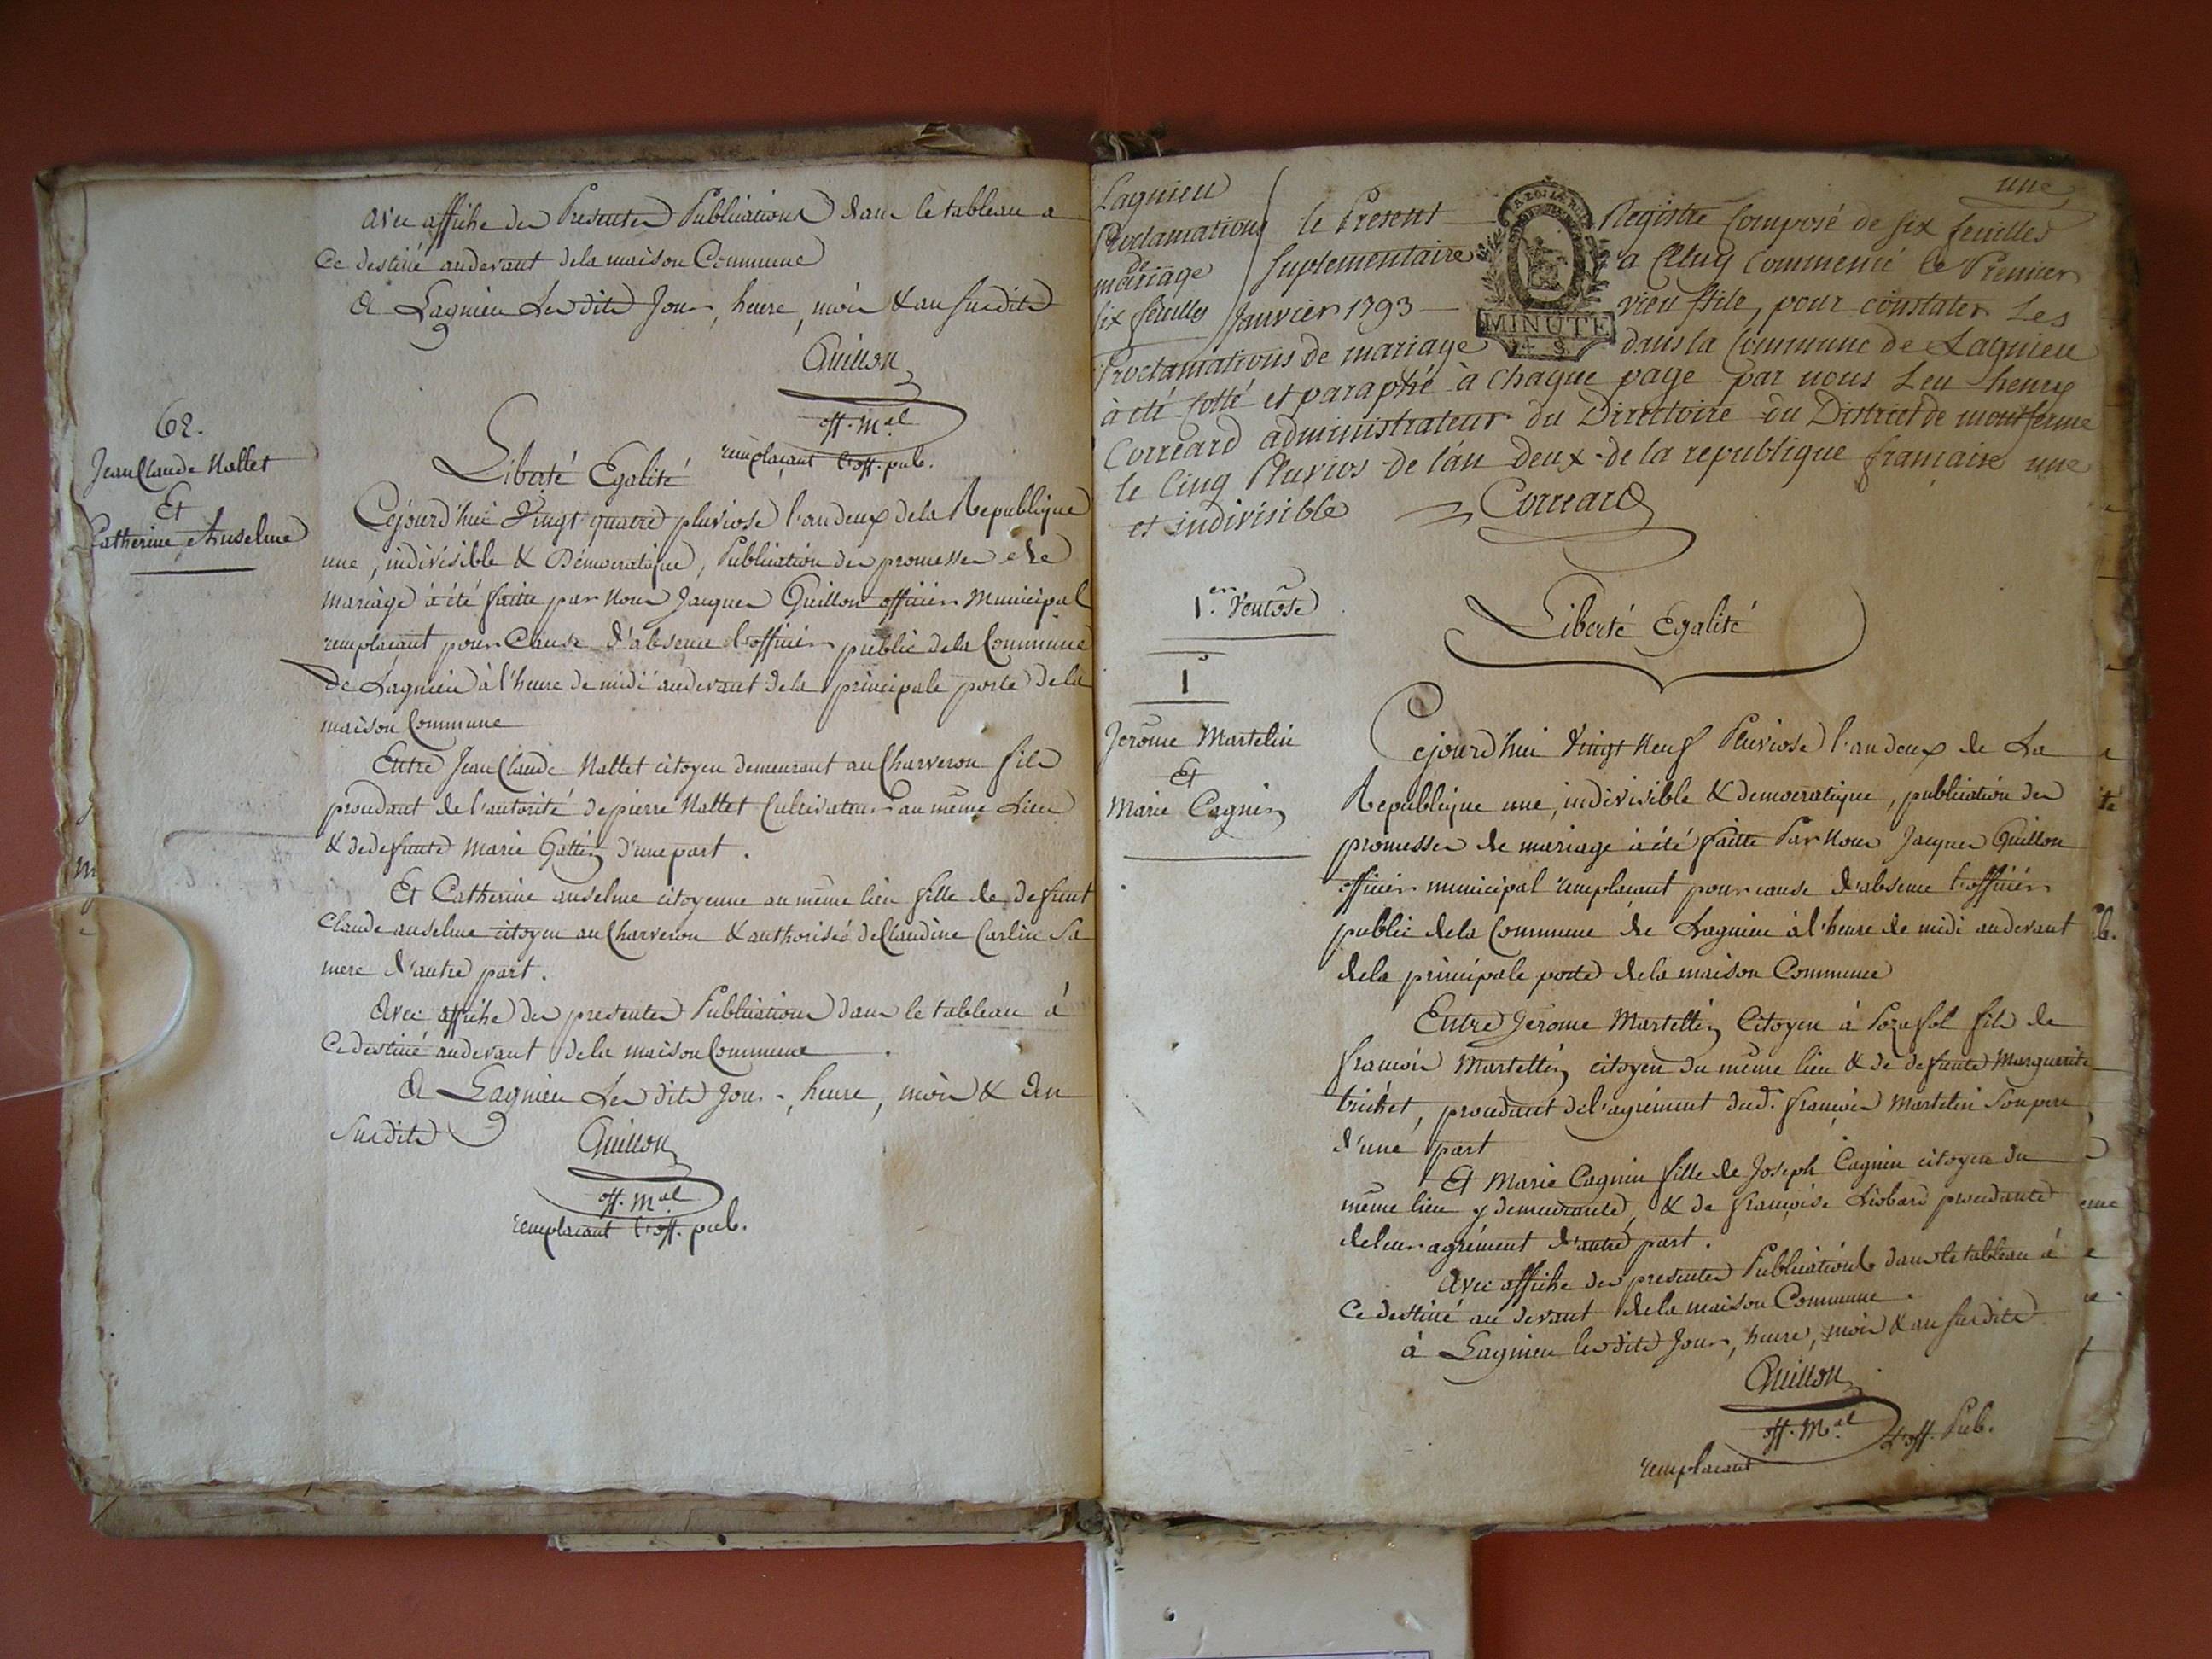 avec affiche des Presentes Publications dans le tableau a
Ce destiné audevant dela maison Commune
A Lagnieu Lesdits Jour, heure, mois & an susdits
Guillon
off. mal
remplaçant l'off. pub.
62.
Jean Claude Nallet
Et
Catherine Anselme
Liberté Egalité
Cejourd'hui Vingt quatre pluviose l'an deux dela Republique
une, indivisible & Démocratique, Publication des promesses de
mariage a été faitte par Nous Jacques Guillon officier Municipal
remplaçant pour Cause d'absence l'officier public dela Commune
De Lagnieu à l'heure de midi audevant dela principale porte dela
maison Commune
Entre Jean Claude Nallet citoyen demeurant au Charveron fils
procédant de l'autorité de pierre Nallet Cultivateur au même Lieu
& de defunte Marie Gattin d'une part.
Et Catherine anselme citoyenne au même lieu fille de defunt
Claude anselme citoyen au Charveron & authorisée de Claudine Carlin Sa
mere d'autre part.
Avec affiche des presentes Publications dans le tableau à
Ce destiné audevant dela maison Commune.
A Lagnieu Lesdits Jour, heure, mois & an
Susdits
Guillon
off. mal
remplacant l'off. pub.
une
Lagnieu
Proclamations
de
mariage
six feuilles
le Present Registre Composé de six feuilles
Suplementaire a Celuy Commencé le Premier
Janvier 1793 vieu stile, pour constater Les
MINUTE
4. S.
Proclamations de mariage dans la Commune de Lagnieu
à été Cotté et paraphé à Chaque page par nous Leu henry
Corréard administrateur du Directoire du District de montferme
le Cinq Pluvios de l'an deux de la republique française une
et indivisible
Correard
1.er Ventose
Liberté Egalité
1
Jerôme Martelin
Et
Marie Cagnin
Cejourd'hui Vingt Neuf Pluviose l'an deux de La
Republique une, indivisible & democratique, publication des
promesses de mariage a été faitte Par Nous Jacques Guillon
officier municipal remplacant pour cause d'absence l'officier
public dela Commune de Lagnieu à l'heure de midi audevant
dela principale porte dela maison Commune
Entre Jerome Martellin Citoyen à Pozafol fils de
françois Martellin citoyen du même lieu & de defunte Marguerite
trichet, procédant de l'agrément dud. françois Martelin Son pere
d'une part
Et Marie Cagnin fille de Joseph Cagnin citoyen du
même lieu y demeurante, & de françoise Liobard procédante
deleur agrément d'autre part.
Avec affiche des presentes Publications dans le tableau à
Ce destiné au devant dela maison Commune.
à Lagnieu lesdits Jour, heure, mois & an susdits
Guillon
off. Mal
remplacant l'off. Pub.